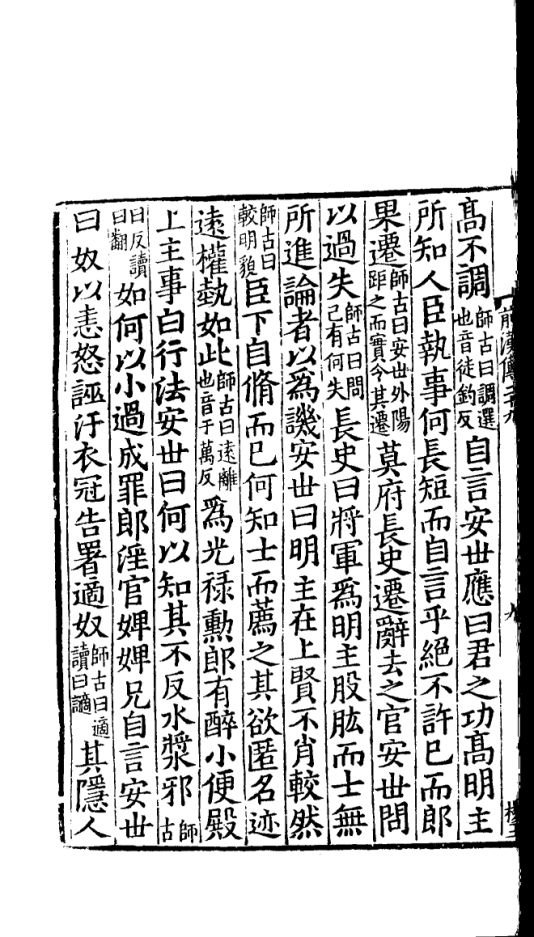 高不調師古曰調選也音徒釣反自言安世應曰君之功高明主
所知人臣執事何長短而自言乎絕不許已而郎
果遷師古曰安世外陽距之而實令其遷莫府長史遷辭去之官安世問
以過失師古曰問己有何失長史曰將軍爲明主股肱而士無
所進論者以爲譏安世曰明主在上賢不肖較然
師古曰較明貌臣下自脩而已何知士而薦之其欲匿名迹
遠權埶如此師古曰遠離也音于萬反爲光祿勲郎有醉小便殿
上主事白行法安世曰何以知其不反水漿邪師古
曰反讀曰翻如何以小過成罪郎淫官婢婢兄自言安世
曰奴以恚怒誣汙衣冠告署適奴師古曰適讀曰讁其隱人
前漢傳二十九
九